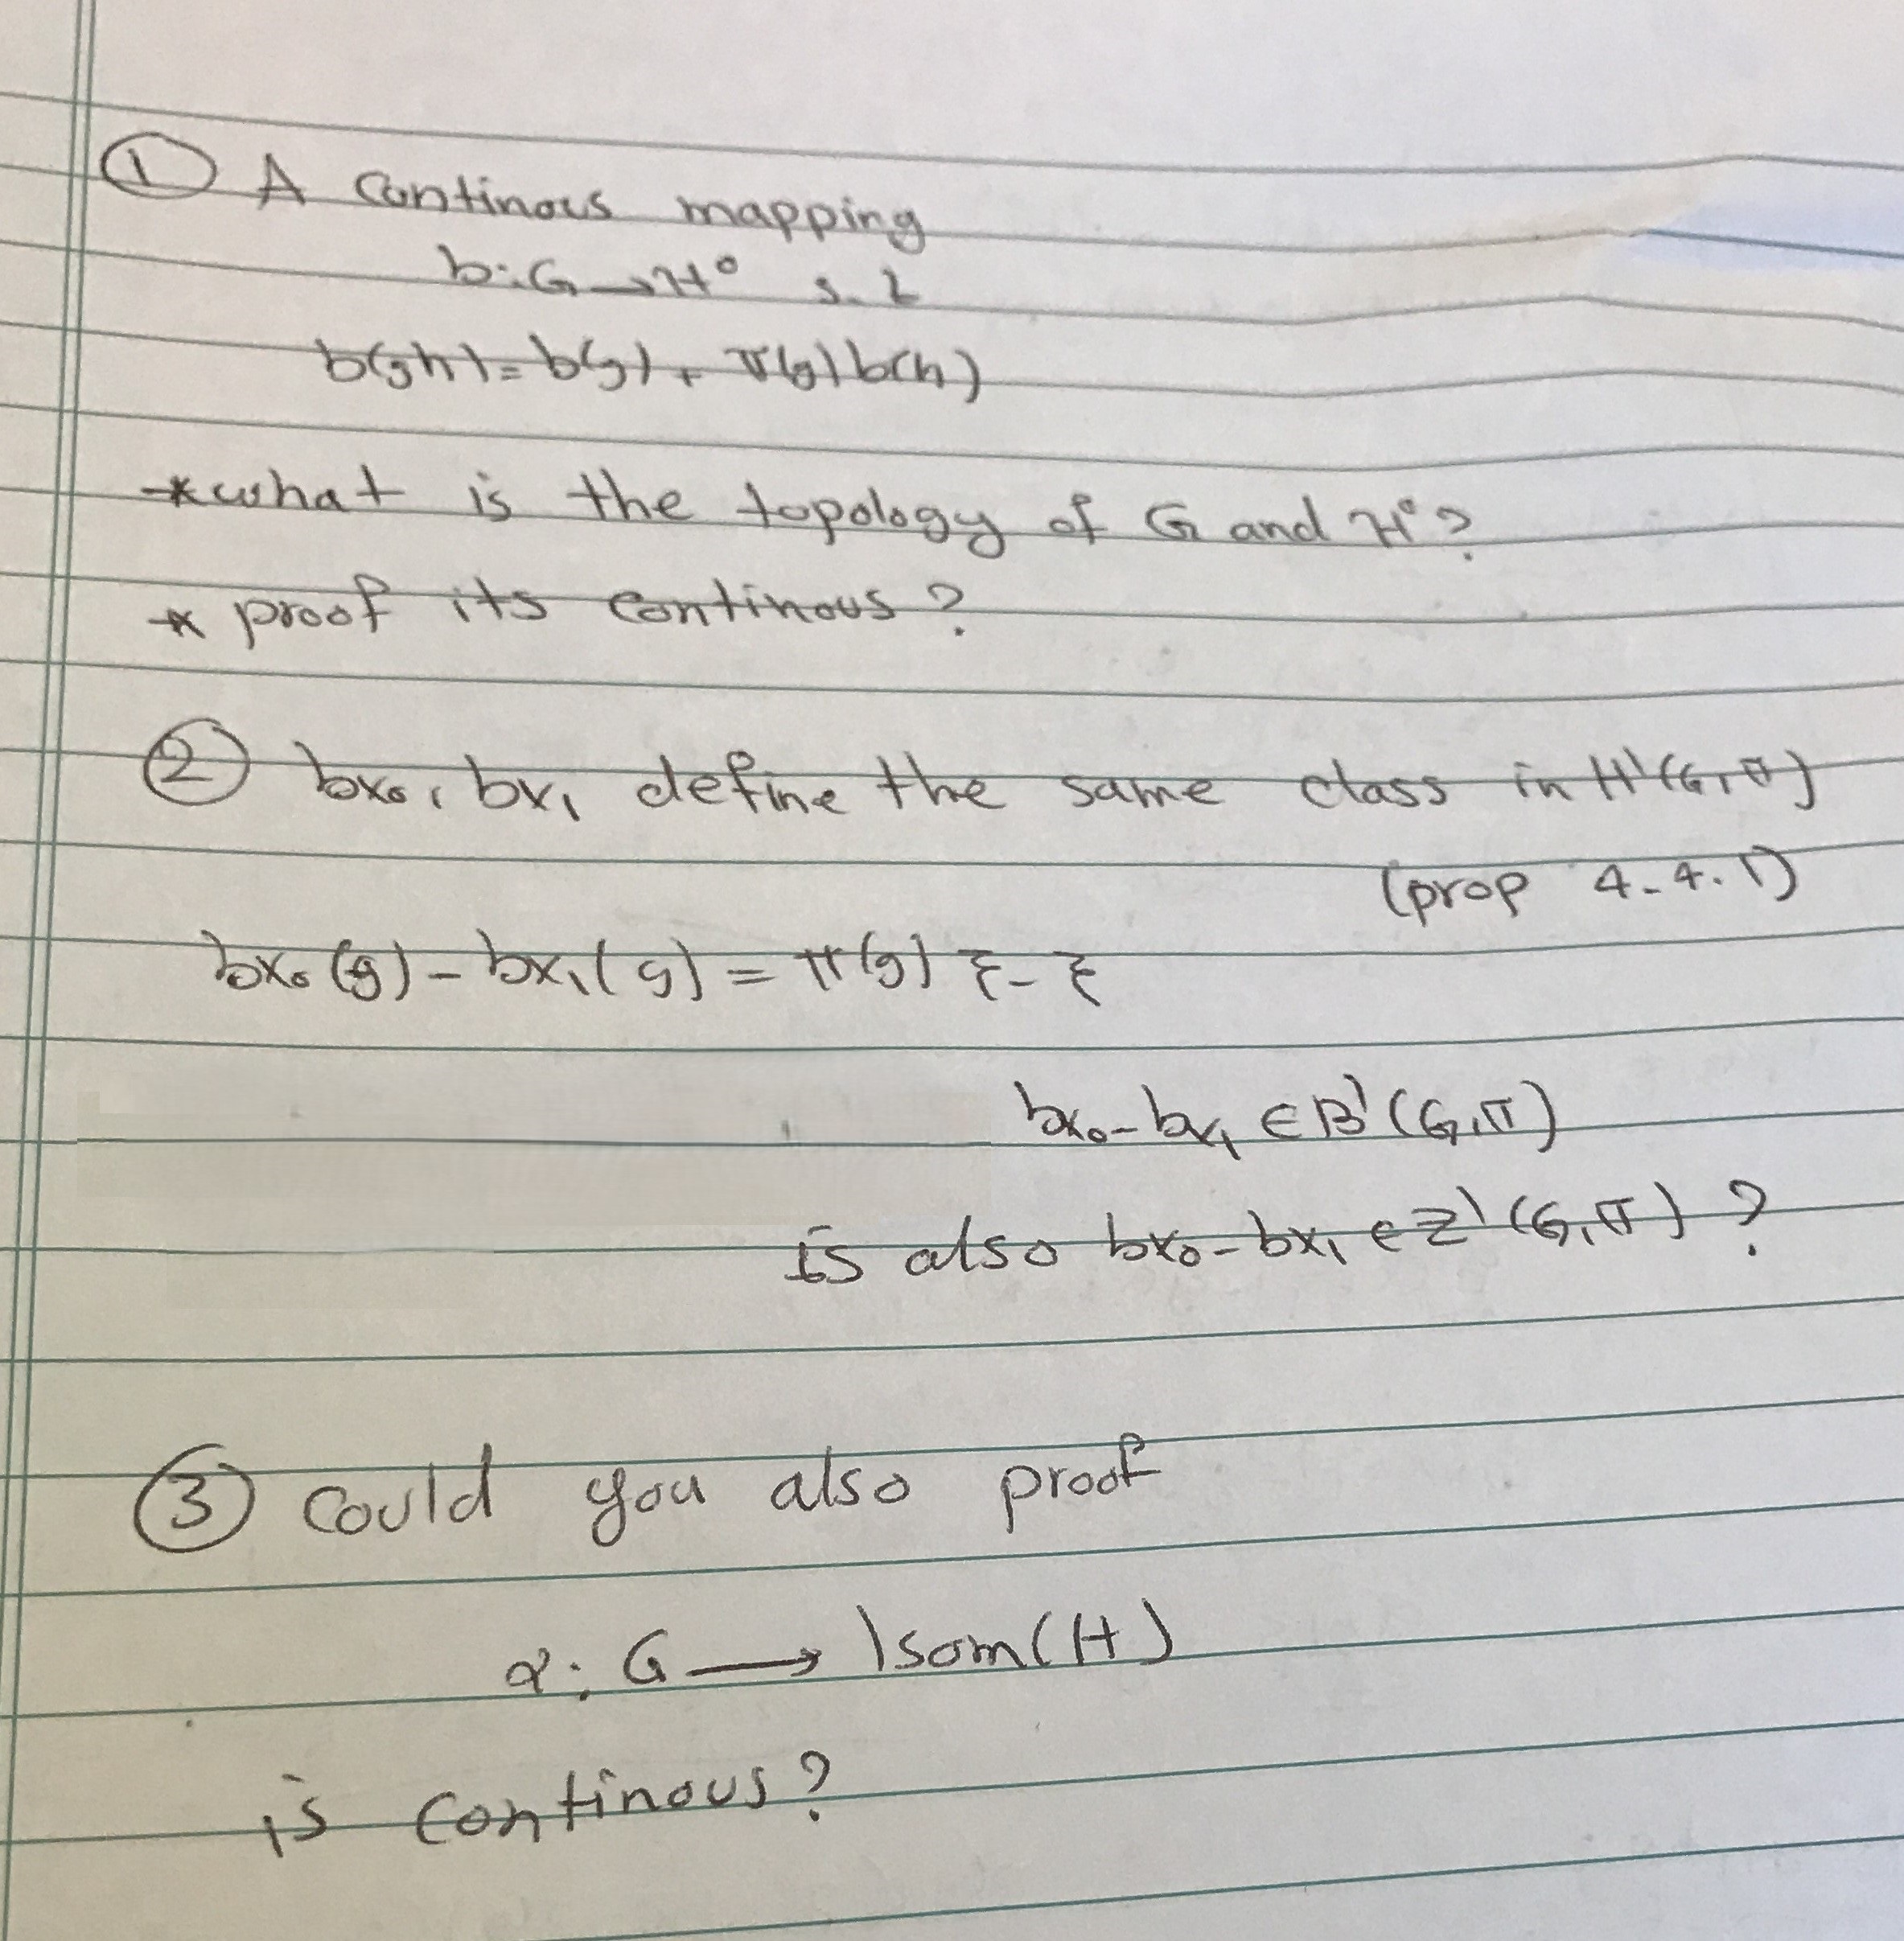 ① A continous mapping
b: G → H° s.t
b(gh) = b(g) + π(g) b(h)
* what is the topology of G and H°?
* proof its continous?
② bx₀, bx₁ define the same class in H¹(G, π)
(prop 4.4.1)
bx₀(g) - bx₁(g) = π(g) ξ - ξ
bx₀ - bx₁ ∈ B¹(G, π)
is also bx₀ - bx₁ ∈ Z¹(G, π) ?
③ Could you also proof
α: G → Isom(H)
is continous?